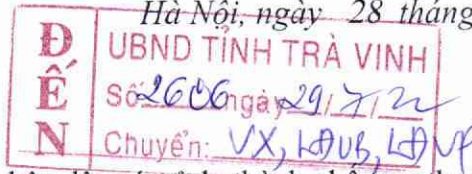 Hà Nội, ngày 28 tháng
ĐẾN
UBND TỈNH TRÀ VINH
Số 2606 ngày 29/7/22
Chuyển: VX, LĐUB, LĐVP